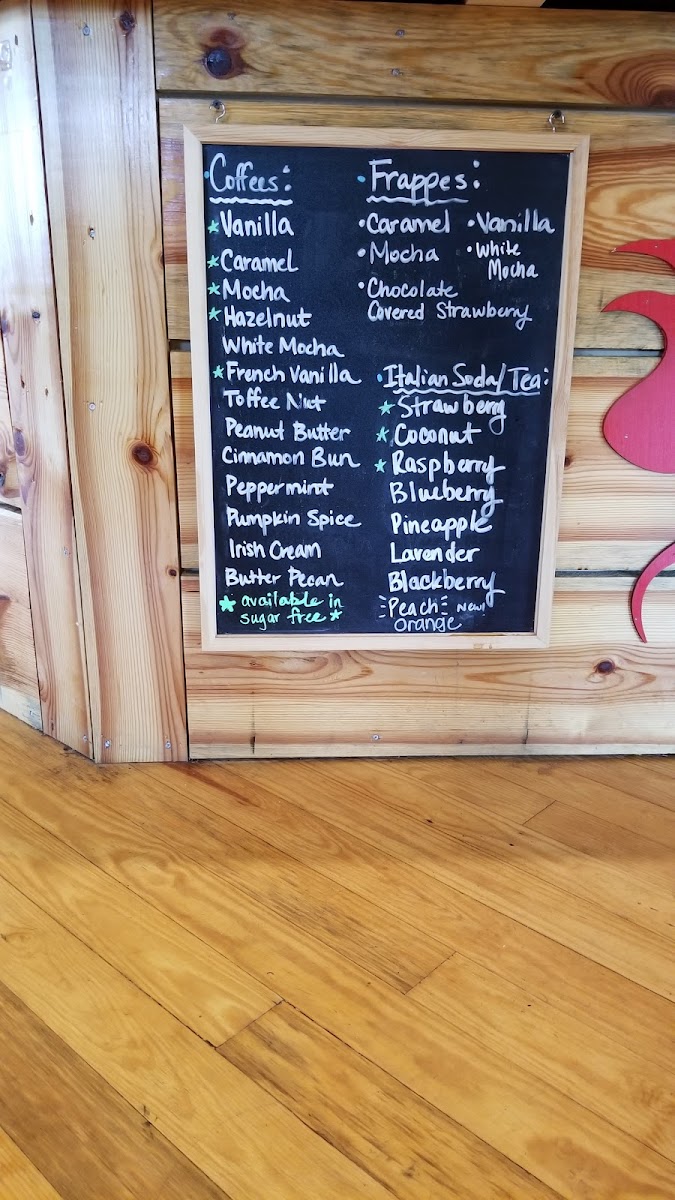 Coffees:
★ Vanilla
★ Caramel
★ Mocha
★ Hazelnut
White Mocha
★ French Vanilla
Toffee Nut
Peanut Butter
Cinnamon Bun
Peppermint
Pumpkin Spice
Irish Cream
Butter Pecan
★ available in
sugar free ★
• Frappes:
• Caramel • Vanilla
• Mocha • White
Mocha
• Chocolate
Covered Strawberry
• Italian Soda/Tea:
★ Strawberry
★ Coconut
★ Raspberry
Blueberry
Pineapple
Lavender
Blackberry
Peach New!
Orange